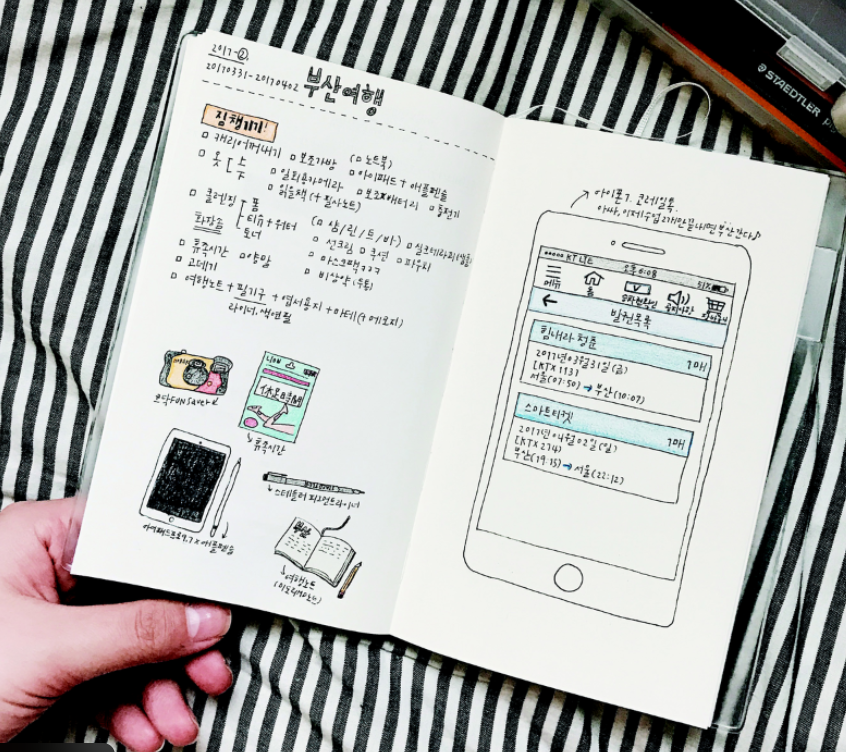 2017-②.
20170331-20170402 부산여행
짐챙기기!
캐리어꺼내기 보조가방 (노트북)
옷 일회용카메라 아이패드 + 애플펜슬
읽을책(+필사노트) 보조배터리 충전기
클렌징 폼
티슈 + 워터
토너
화장솜
(샴/린/트/바)
선크림 쿠션 파우치
마스크팩
비상약
휴족시간 양말
고데기
여행노트 + 필기구 + 엽서용지 + 마테(+메모지)
라이너, 색연필
코닥FUNSaver
LION
休足時間
휴족시간
아이패드프로9.7 x 애플펜슬
스테들러 피그먼트라이너
여행노트
아이폰7. 코레일톡.
아싸, 이제 수업 2개만 끝내면 부산간다♪
KT LTE 오후 6:08
메뉴 홈
←
발권목록
힘내라 청춘 1매
2017년 03월 31일 (금)
[KTX 113]
서울(07:50) → 부산(10:07)
스마트티켓 1매
2017년 04월 02일 (일)
[KTX 274]
부산(19:35) → 서울(22:12)
STAEDTLER